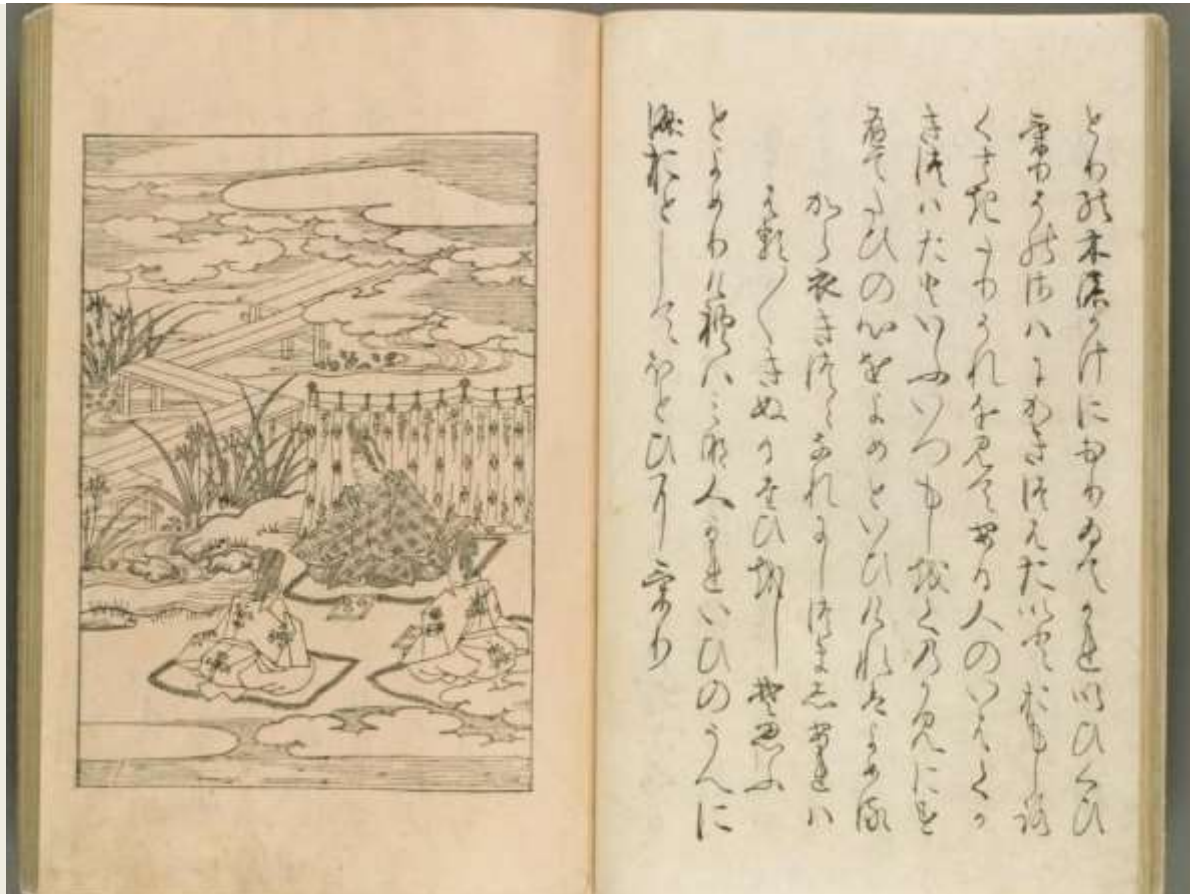 とりの木のかけにおりゐてかれいひくひ
けりその沢にかきつはたいとおもしろ
くさきたりそれを見てある人のいはくか
きつハたといふいつもしを句のかみにす
へてたひの心をよめといひけれはよめる
から衣きつゝなれにしつましあれハ
はる〳〵きぬるたひをしそ思ふ
とよめりけれハみな人かれいひのうへに
涙おとしてほとひにけり